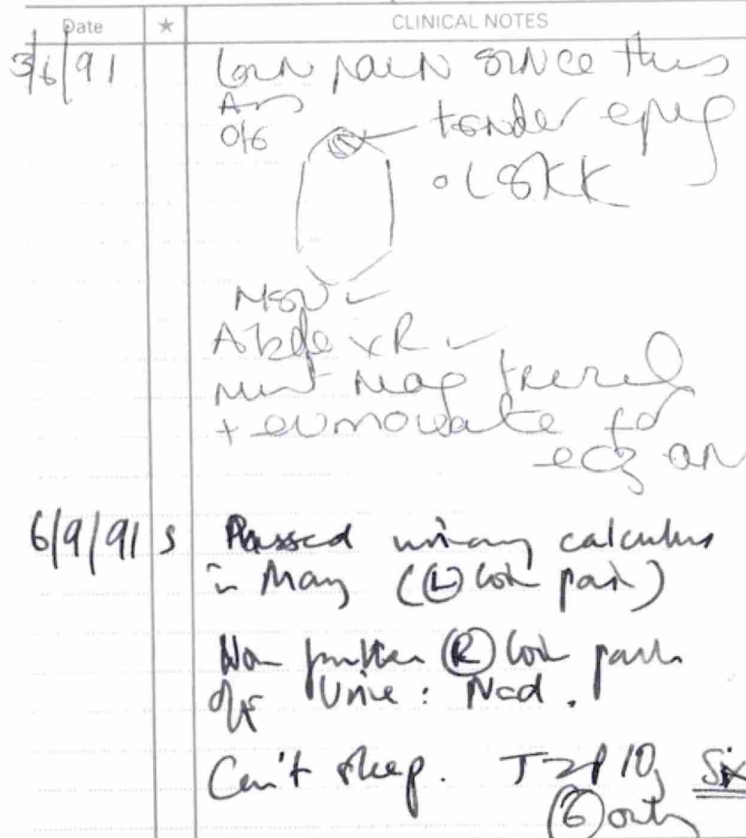 Date ★ CLINICAL NOTES
3/6/91 loin pain since this
O/E
tender epig
° LSKK
MSU ✓
Abdo XR ✓
+ eumovate for
eczema
6/9/91 S Passed urinary calculus
in May (Ⓛ loin pain)
Now further Ⓡ loin pain
O/E Urine: Nad.
Can't sleep. T 10 Six
⑥ only